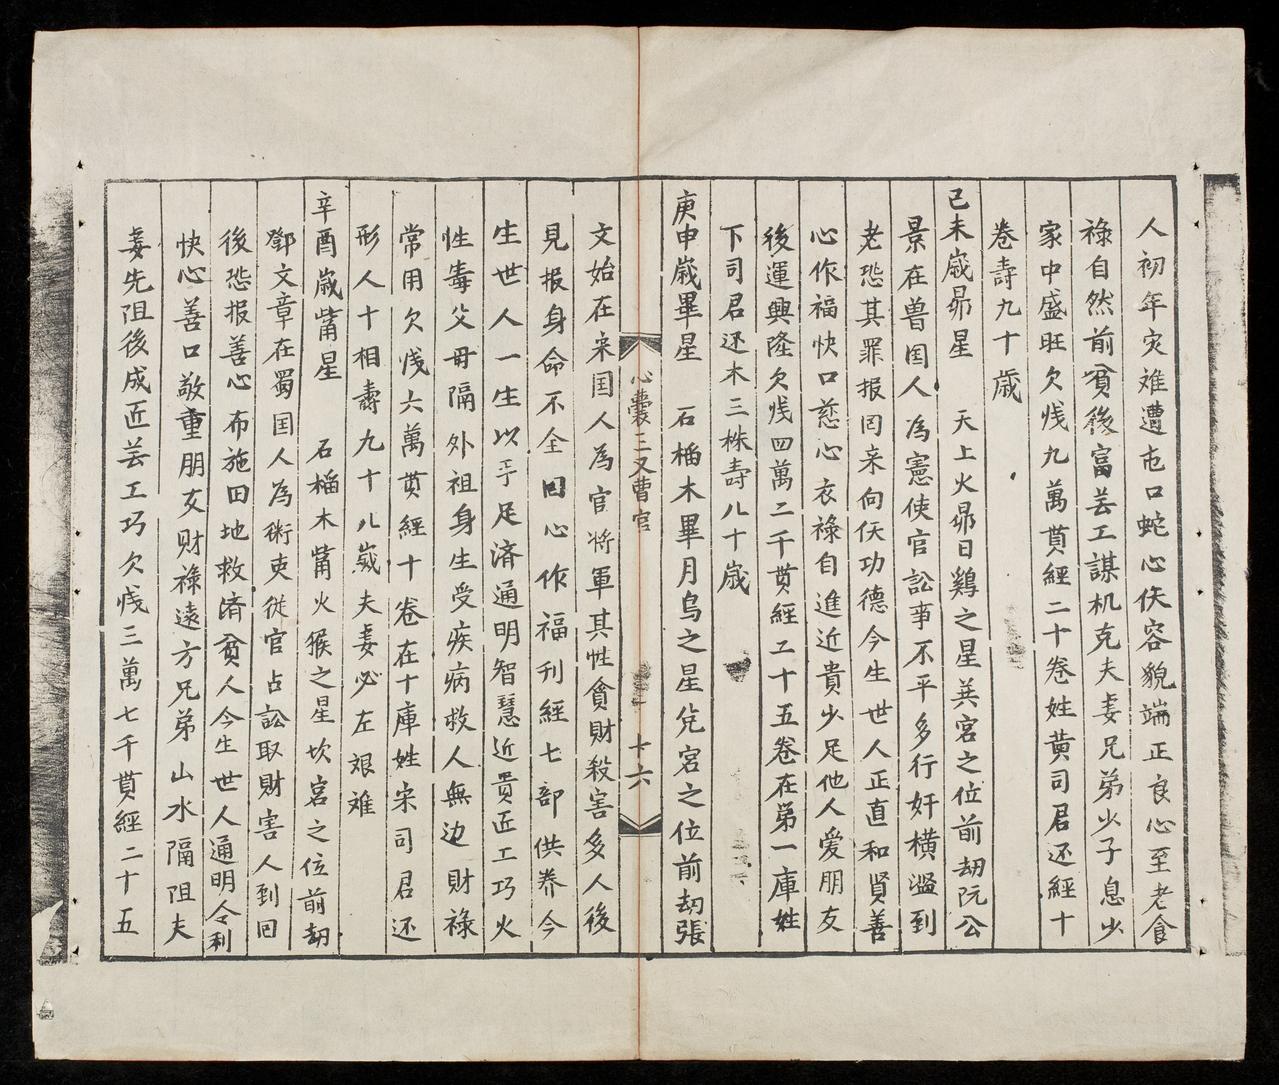 人初年灾难遭乇口蛇心佚容貌端正良心至老食
禄自然前貧後富芸工謀机克夫妻兄弟少子息少
家中盛旺欠㦮九萬貫經二十卷姓黄司君还經十
卷壽九十歳
己未歳昴星 天上火昴日鷄之星兊宮之位前劫阮公
景在曽囯人為憲使官訟事不平多行奸横濫到
老恐其罪报囘来向仸功德今生世人正直和賢善
心作福快口慈心衣禄自進近貴少足他人爱朋友
後運興隆欠㦮四萬二千貫經二十五卷在第一庫姓
下司君还木三株壽八十歳
庚申歳畢星 石榴木畢月烏之星兊宮之位前劫張
心囊三又曹官 十六
文始在宋囯人為官将軍其性貪財殺害多人後
見报身命不全囘心作福刊經七部供养今
生世人一生以手足済通明智慧近贵近工巧火
性毒父母隔外祖身生受疾病救人無边財禄
常用欠㦮六萬貫經十卷在十庫姓宋司君还
形人十相壽九十八歳夫妻必左艰难
辛酉歳觜星 石榴木觜火猴之星坎宮之位前劫
鄧文章在蜀囯人為術吏従官占訟取財害人到囘
後恐报善心布施田地救済貧人今生世人通明令利
快心善口敬重朋友财禄遠方兄弟山水隔阻夫
妻先阻後成近芸工巧欠㦮三萬七千貫經二十五